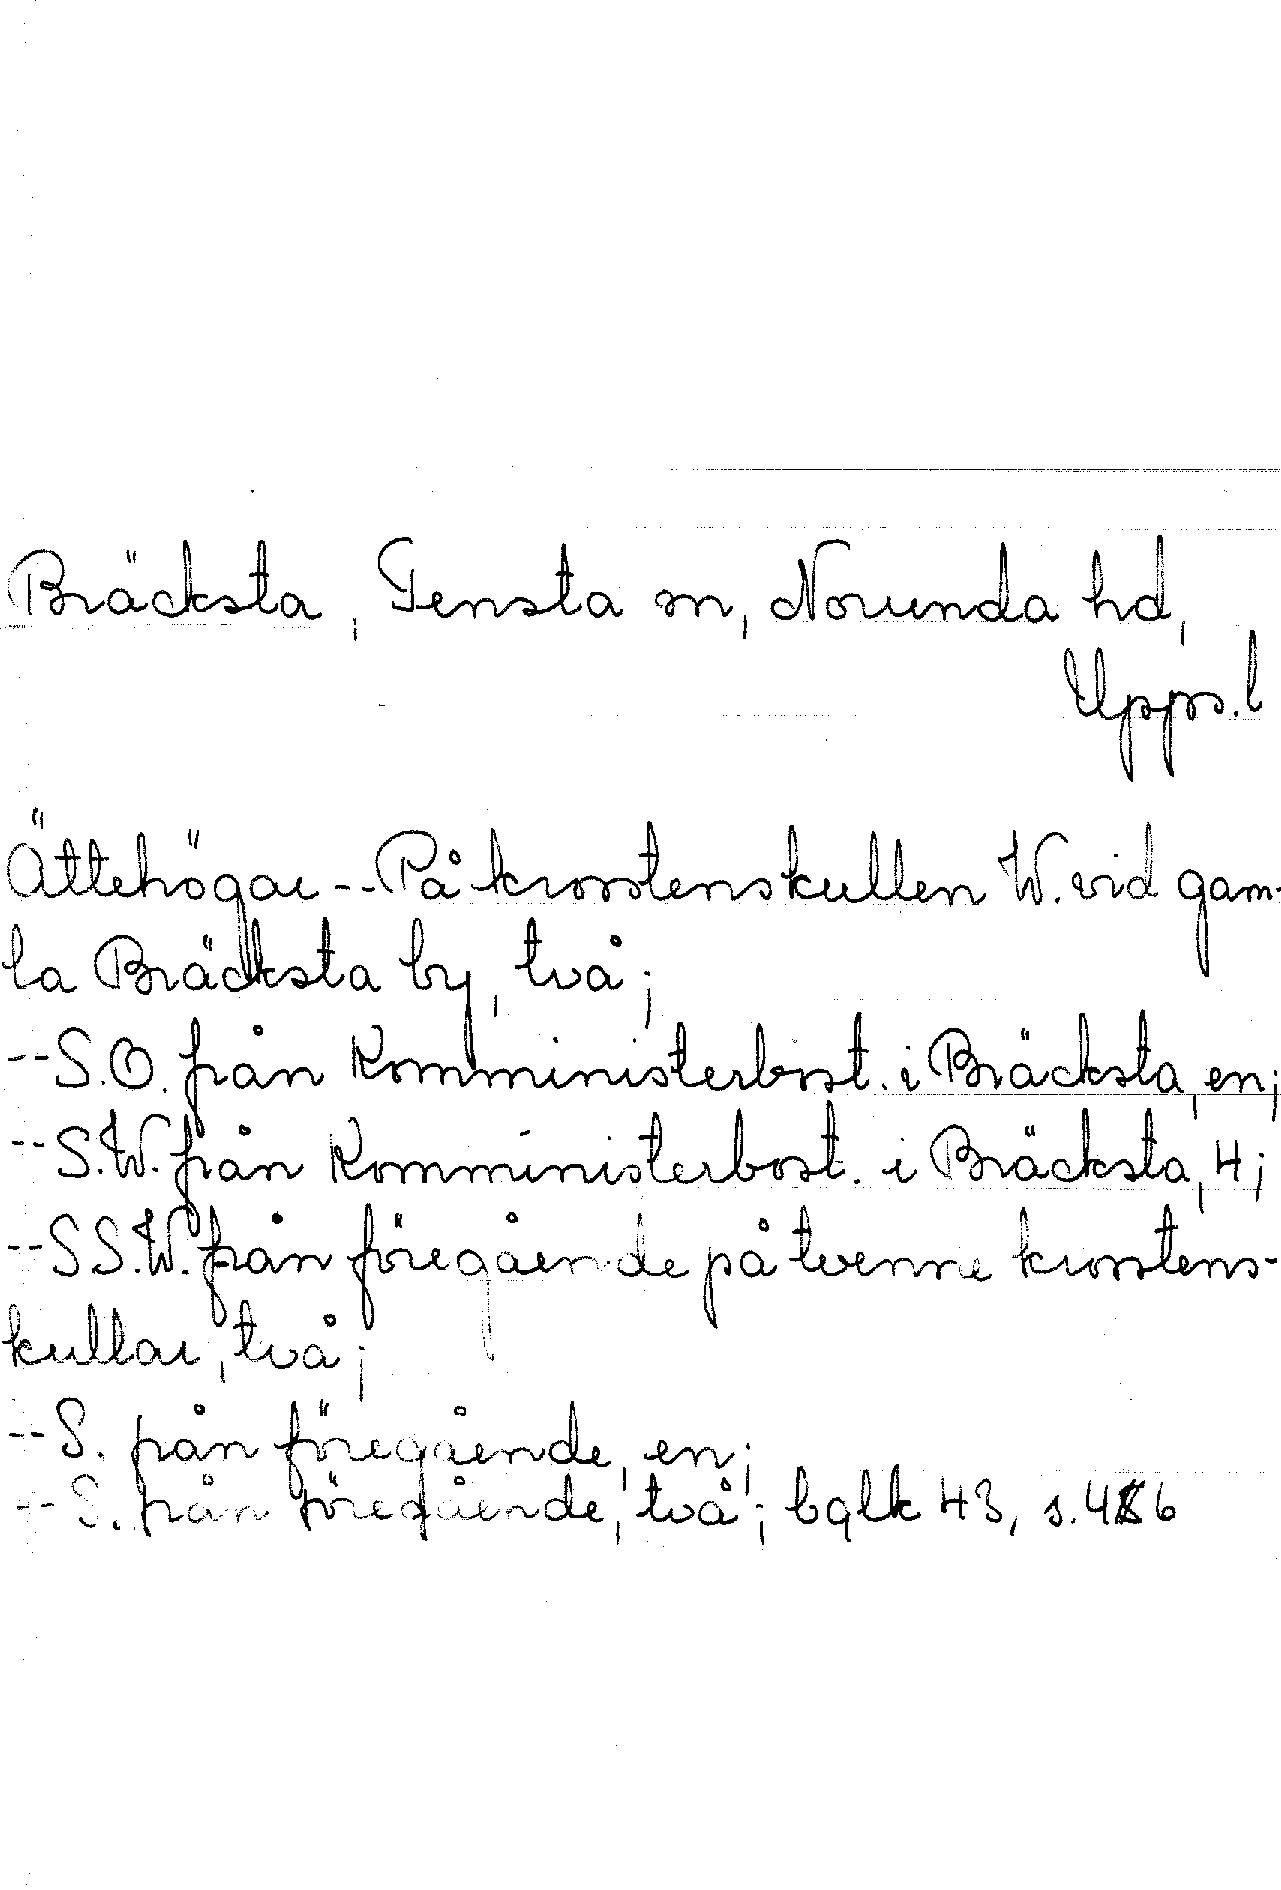 Bräcksta, Tensta sn, Norunda hd,
Upps. l
Ättehögar -- På krosstenskullen W. vid gam-
la Bräcksta by, två;
-- S.O. från Komministerbost. i Bräcksta, en;
-- S.W. från Komministerbost. i Bräcksta, 4;
-- S.S.W. från föregående på tvenne krosstens-
kullar, två;
-- S. från föregående, en;
-- S. från föregående, två; bqlk 43, s.